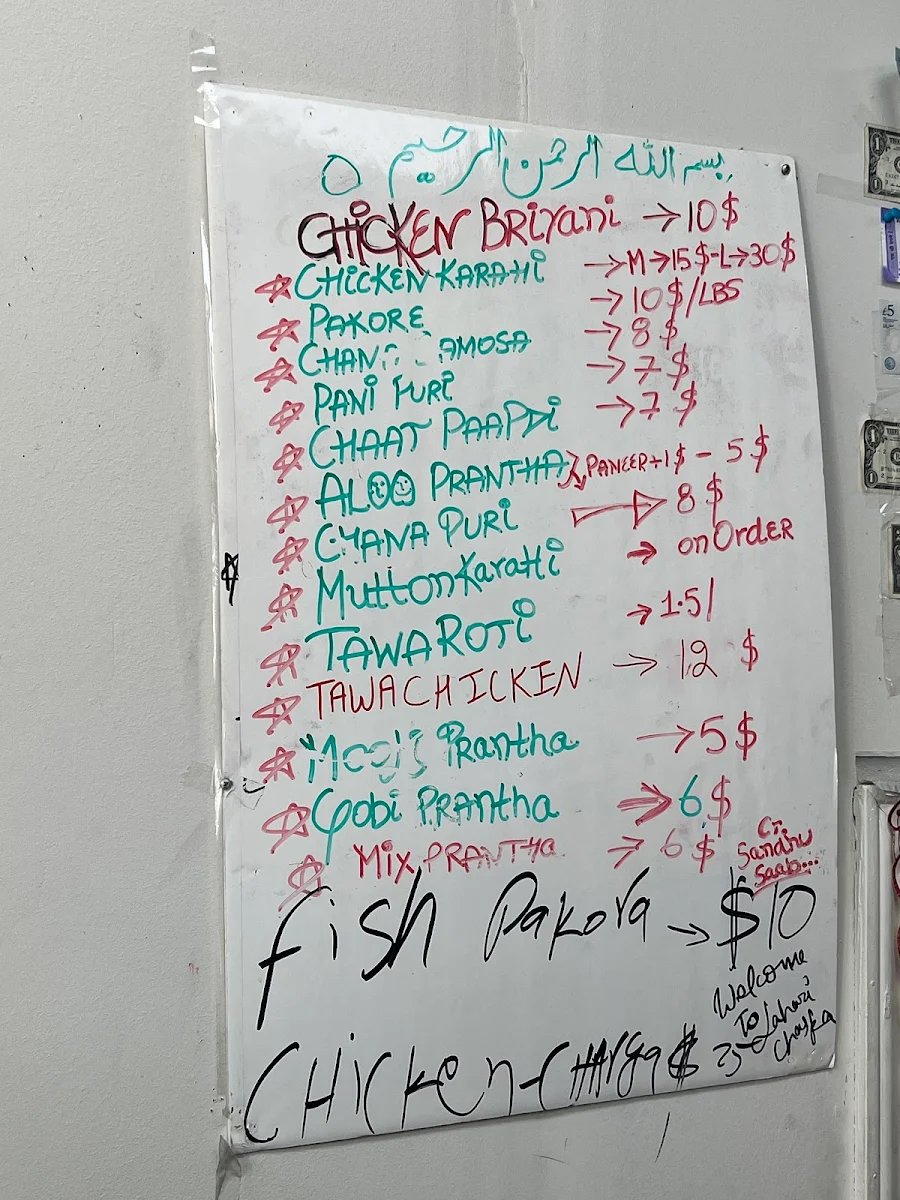 بسم الله الرحمن الرحيم
CHICKEN BRIYANI → 10$
☆ CHICKEN KARAHI → M → 15$ - L → 30$
☆ PAKORE → 10$/LBS
☆ CHANA SAMOSA → 8$
☆ PANI PURI → 7$
☆ CHAAT PAAPDI → 7$
☆ ALOO PRANTHA PANEER + 1$ - 5$
☆ CHANA PURI → 8$
☆ Mutton Karahi → on OrdER
☆ TAWA ROTI → 1.5/
☆ TAWA CHICKEN → 12 $
☆ Prantha → 5$
☆ Gobi PRANtha → 6$
☆ Mix PRANTHA → 6$
Sandhu
Saab...
Fish Pakora → $10
Welcome
To Lahori
Chaska
CHicken-CHARga $
£5
1